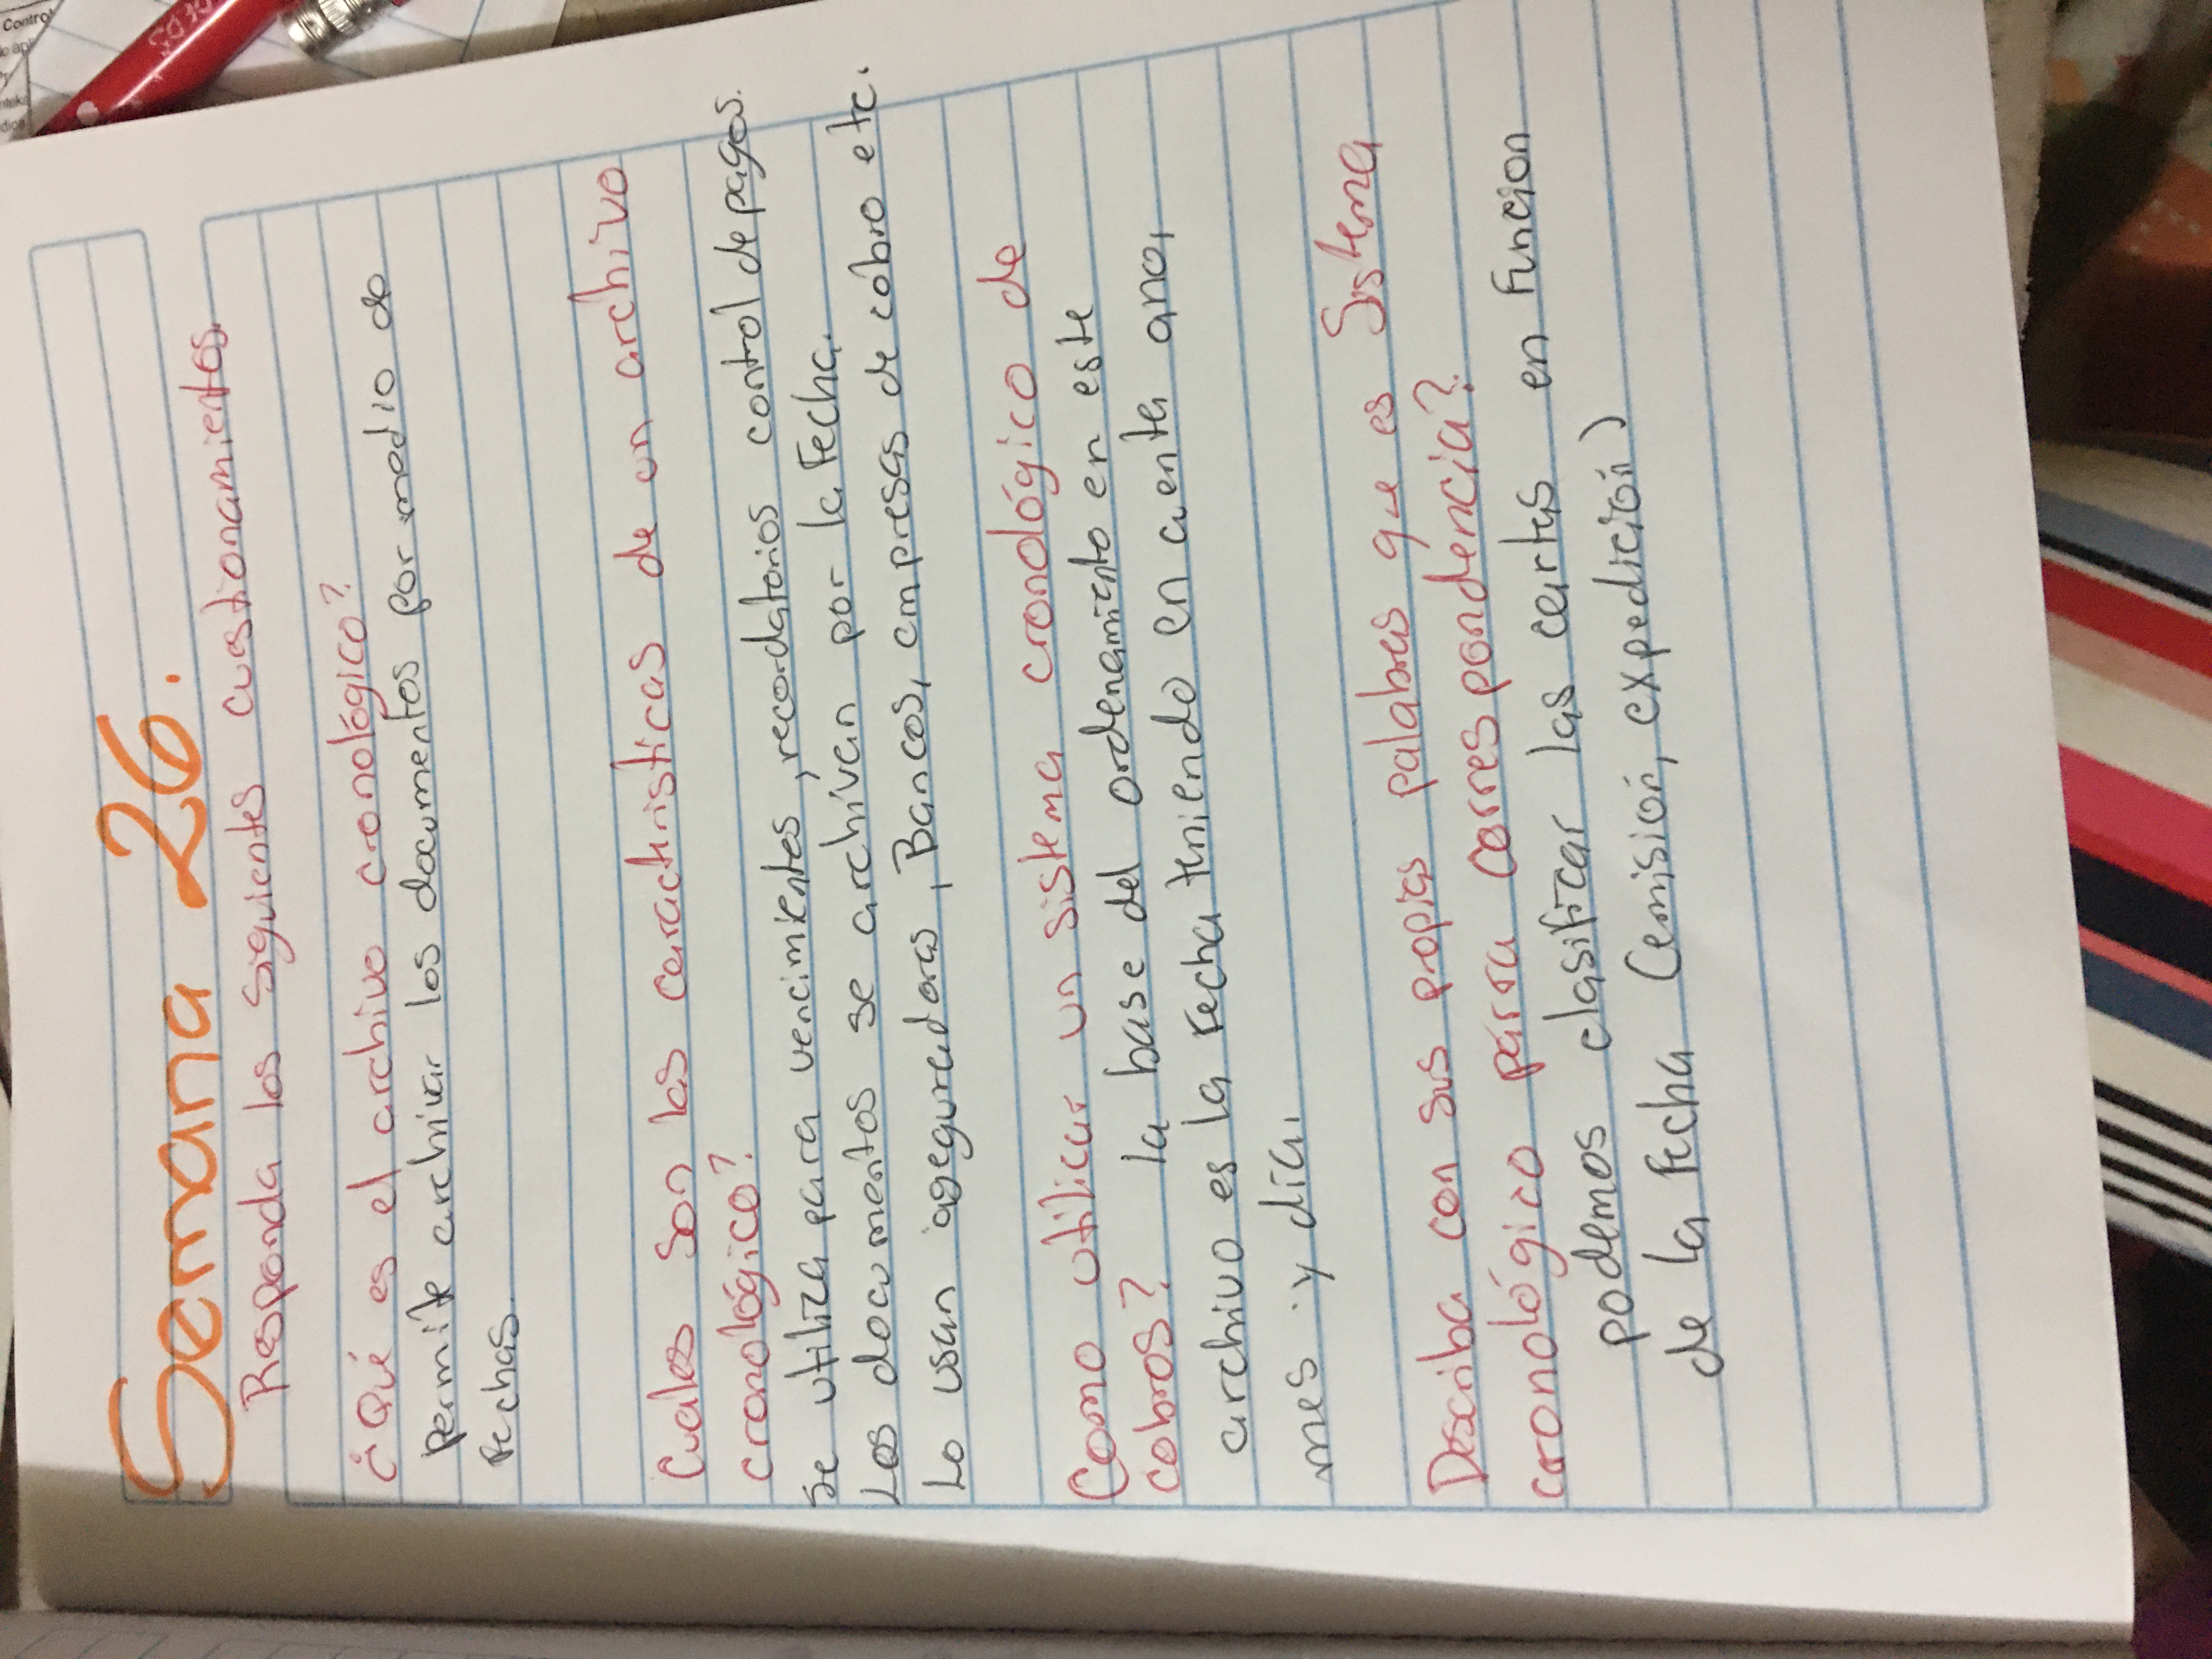 Semana 26.
Responda los siguientes cuestionamientos.
¿Qué es el archivo cronológico?
Permite archivar los documentos por medio de
fechas.
Cuales son las caracteristicas de un archivo
cronológico?
Se utiliza para vencimientos, recordatorios control de pagos.
Los documentos se archivan por la Fecha.
Lo usan aseguradoras, Bancos, empresas de cobro etc.
Como utilizar un sistema cronológico de
cobros? la base del ordenamiento en este
archivo es la fecha teniendo en cuenta ano,
mes y día.
Describa con sus propias palabras que es Sistema
cronológico para correspondencia?
podemos clasificar las cartas en Funcion
de la fecha (emisión, expedición)
Control